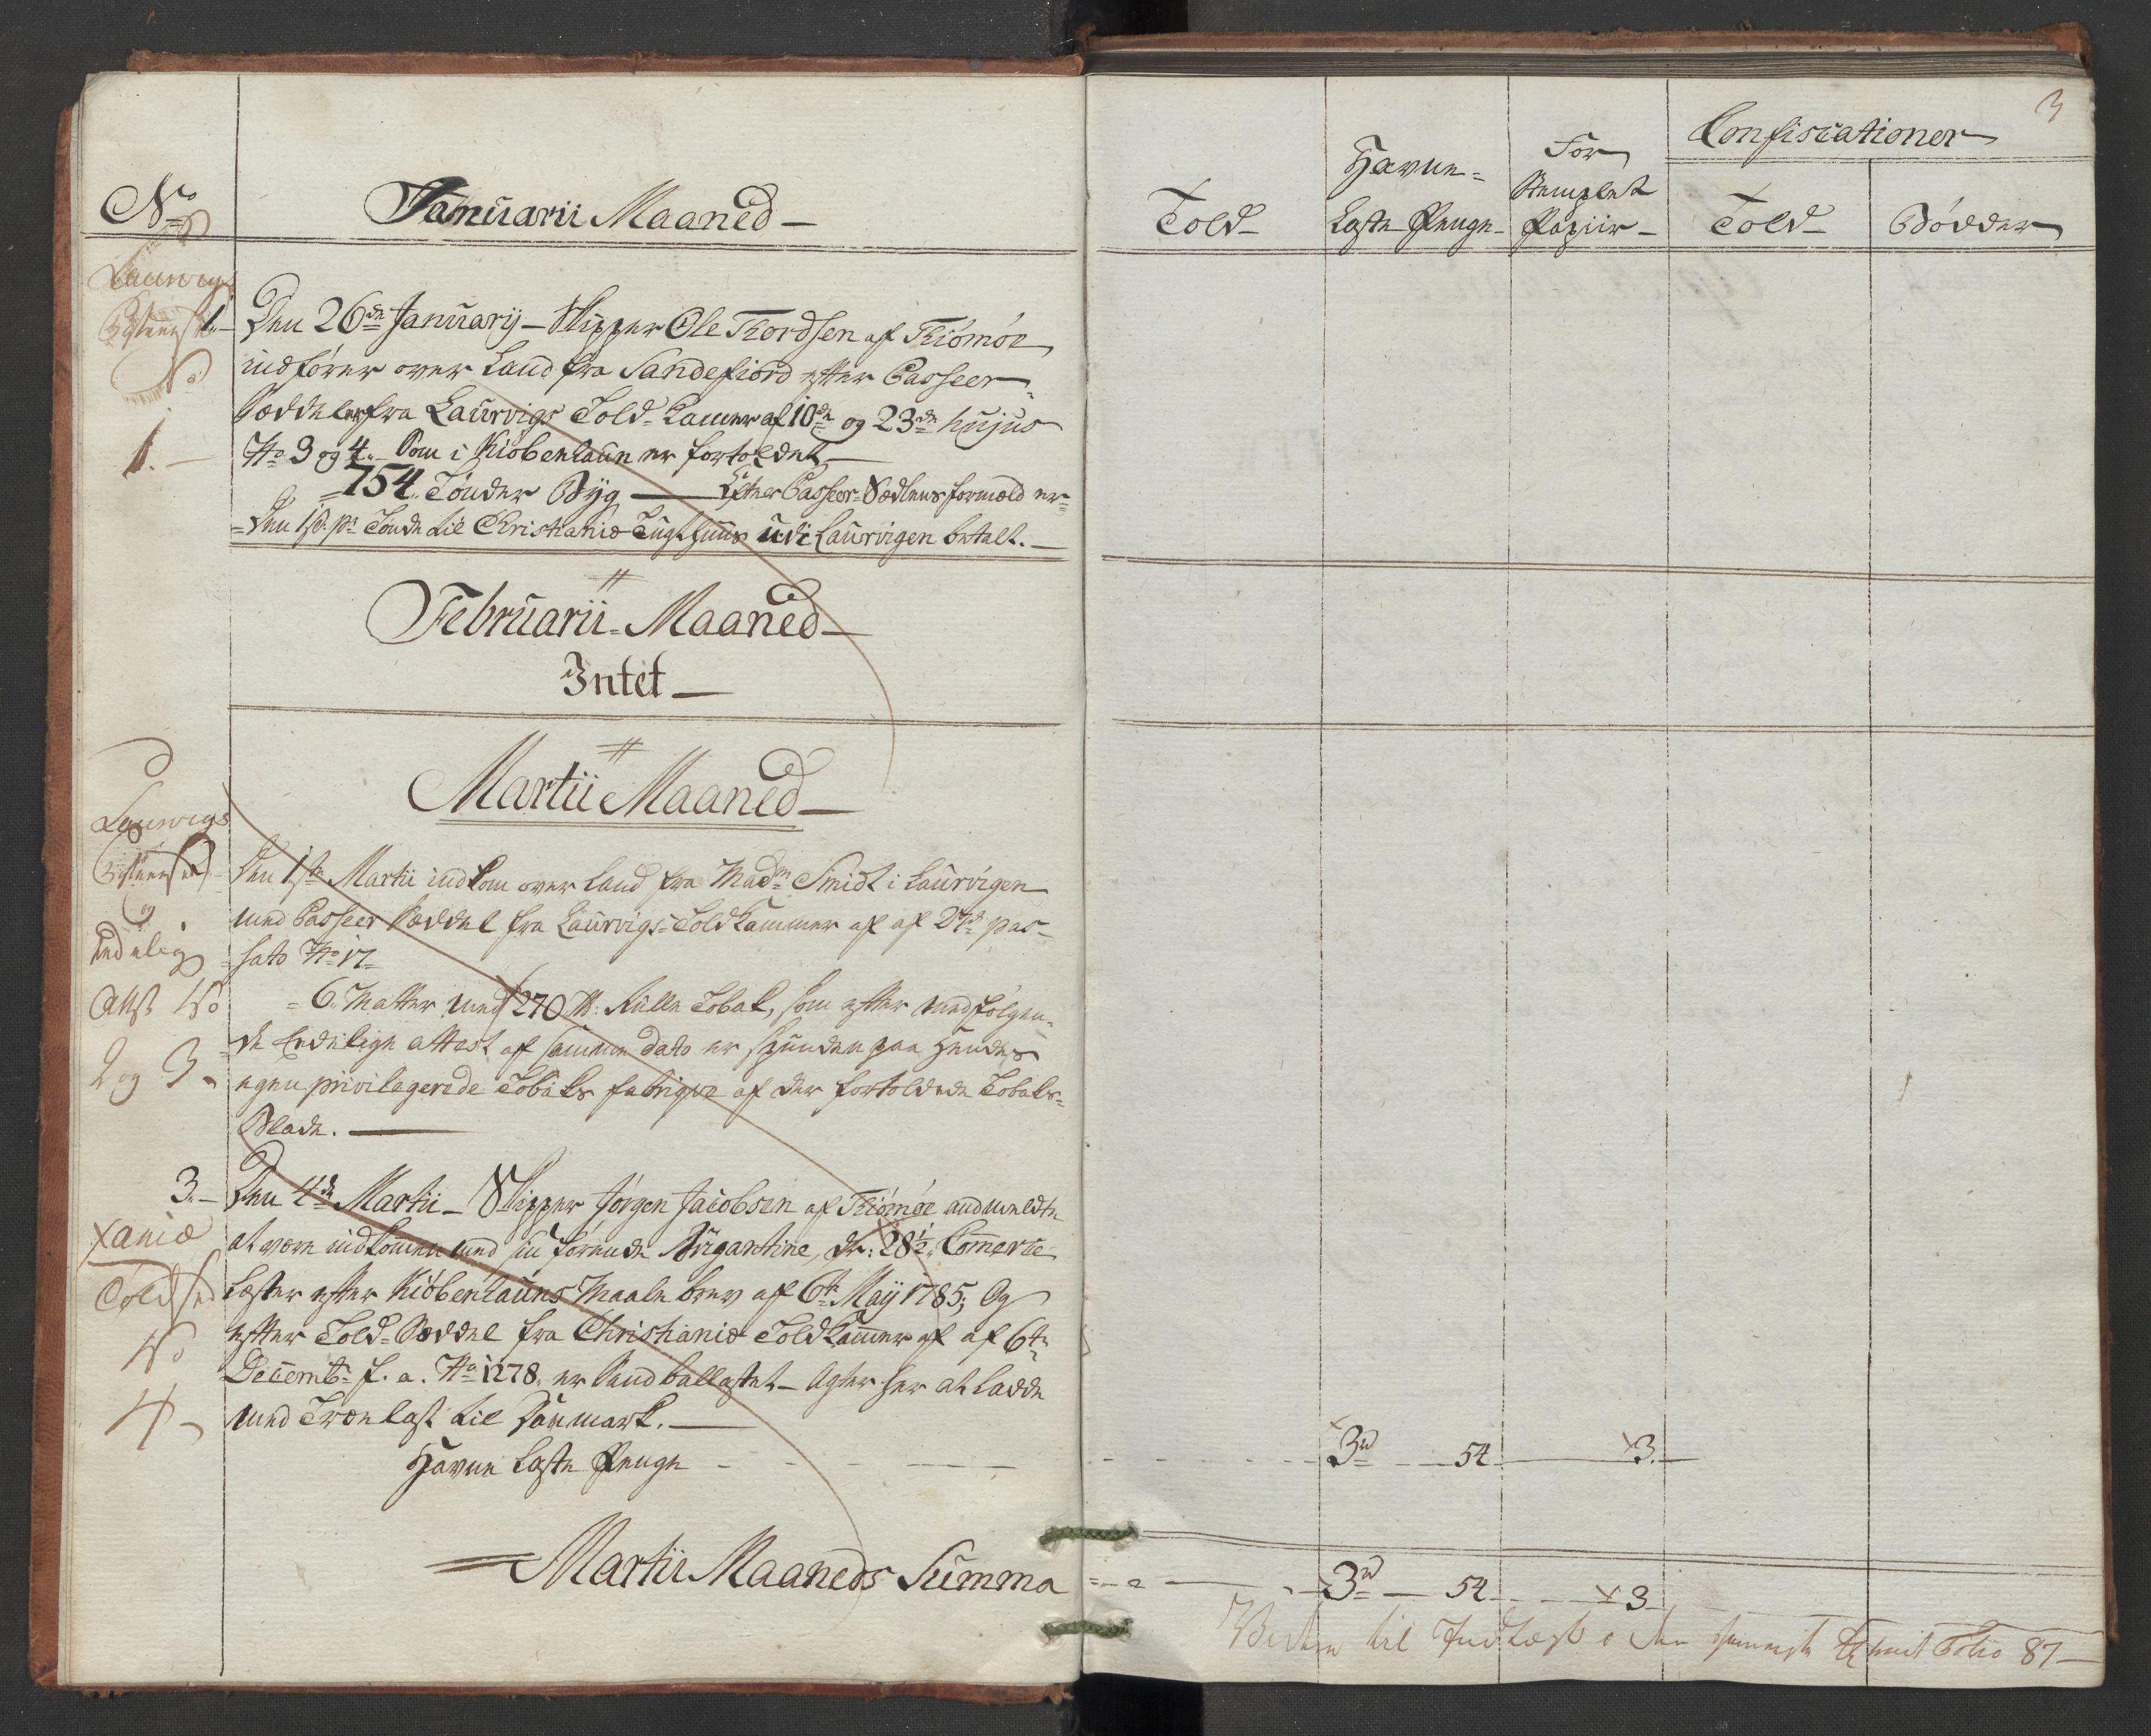 No
Januarii Maaned
Laurvigs
1 Den 26de Januarij – Skipper Ole Thordsen af Thiömöe
indförer over Land fra Sandefiord efter Passeer
Seddeler fra Laurvigs Told-Kamer af 10de og 23de hujus
No 3 og 4. Som i Kiöbenhaun er fortoldet
1.
754 Tönder Byg — Efter Passeer-Sedlens formeld er
den 1 s. pr Tönde til Christaniæ Tugthuus udi Laurvigen betalt.
Februarii Maaned
Intet
Martii Maaned
Laurvigs
Den 1ste Martii indkom over Land fra Madm Smidt i Laurvigen
med Passeer Seddel fra Laurvigs Told Kammer af af pas-
sato No 17
Eedelig
Attst No
2 og 3
6 Matter med 270 lb: Rulle Tobak, som efter medfölgen-
de Eedelige attest af samme dato er spunden paa hendes
egen privilegerede Tobaks fabrique af der fortoldede Tobaks-
Blade.
3. Den 4de Martii – Skipper Jörgen Jacobsen af Thiömöe anmeldte
at være indkommen med sin förende Brigantine, dr: 28½ Comerce
Læster efter Kiöbenhauns Maale brev af 6te Maij 1785; Og
efter Told-Seddel fra Christianiæ Told Kammer af af 6te
Decembr f. a. No 1278 er Sand ballastet – Agter her at ladde
med Trælast til Danmark.
Xaniæ
Told sed
No
4
Havne Læste Penge
Martii Maaneds Summa
3
Told
Havne-
Læste Penge
For
Stemplet
Papiir
Confiscationer
Told
Bödder
3rd 54 3.
3rd 54 3
til Indtægt i den Folio 87